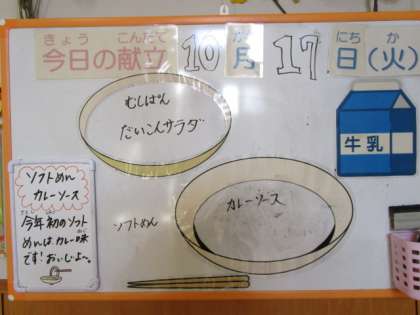 きょう こんだて がつ にち か
今日の献立 10月17日(火)
むしぱん
だいこんサラダ
牛乳
カレーソース
ソフトめん
ソフトめん
カレーソース
今年初のソフト
めんは、カレー味
です!おいしよ〜。